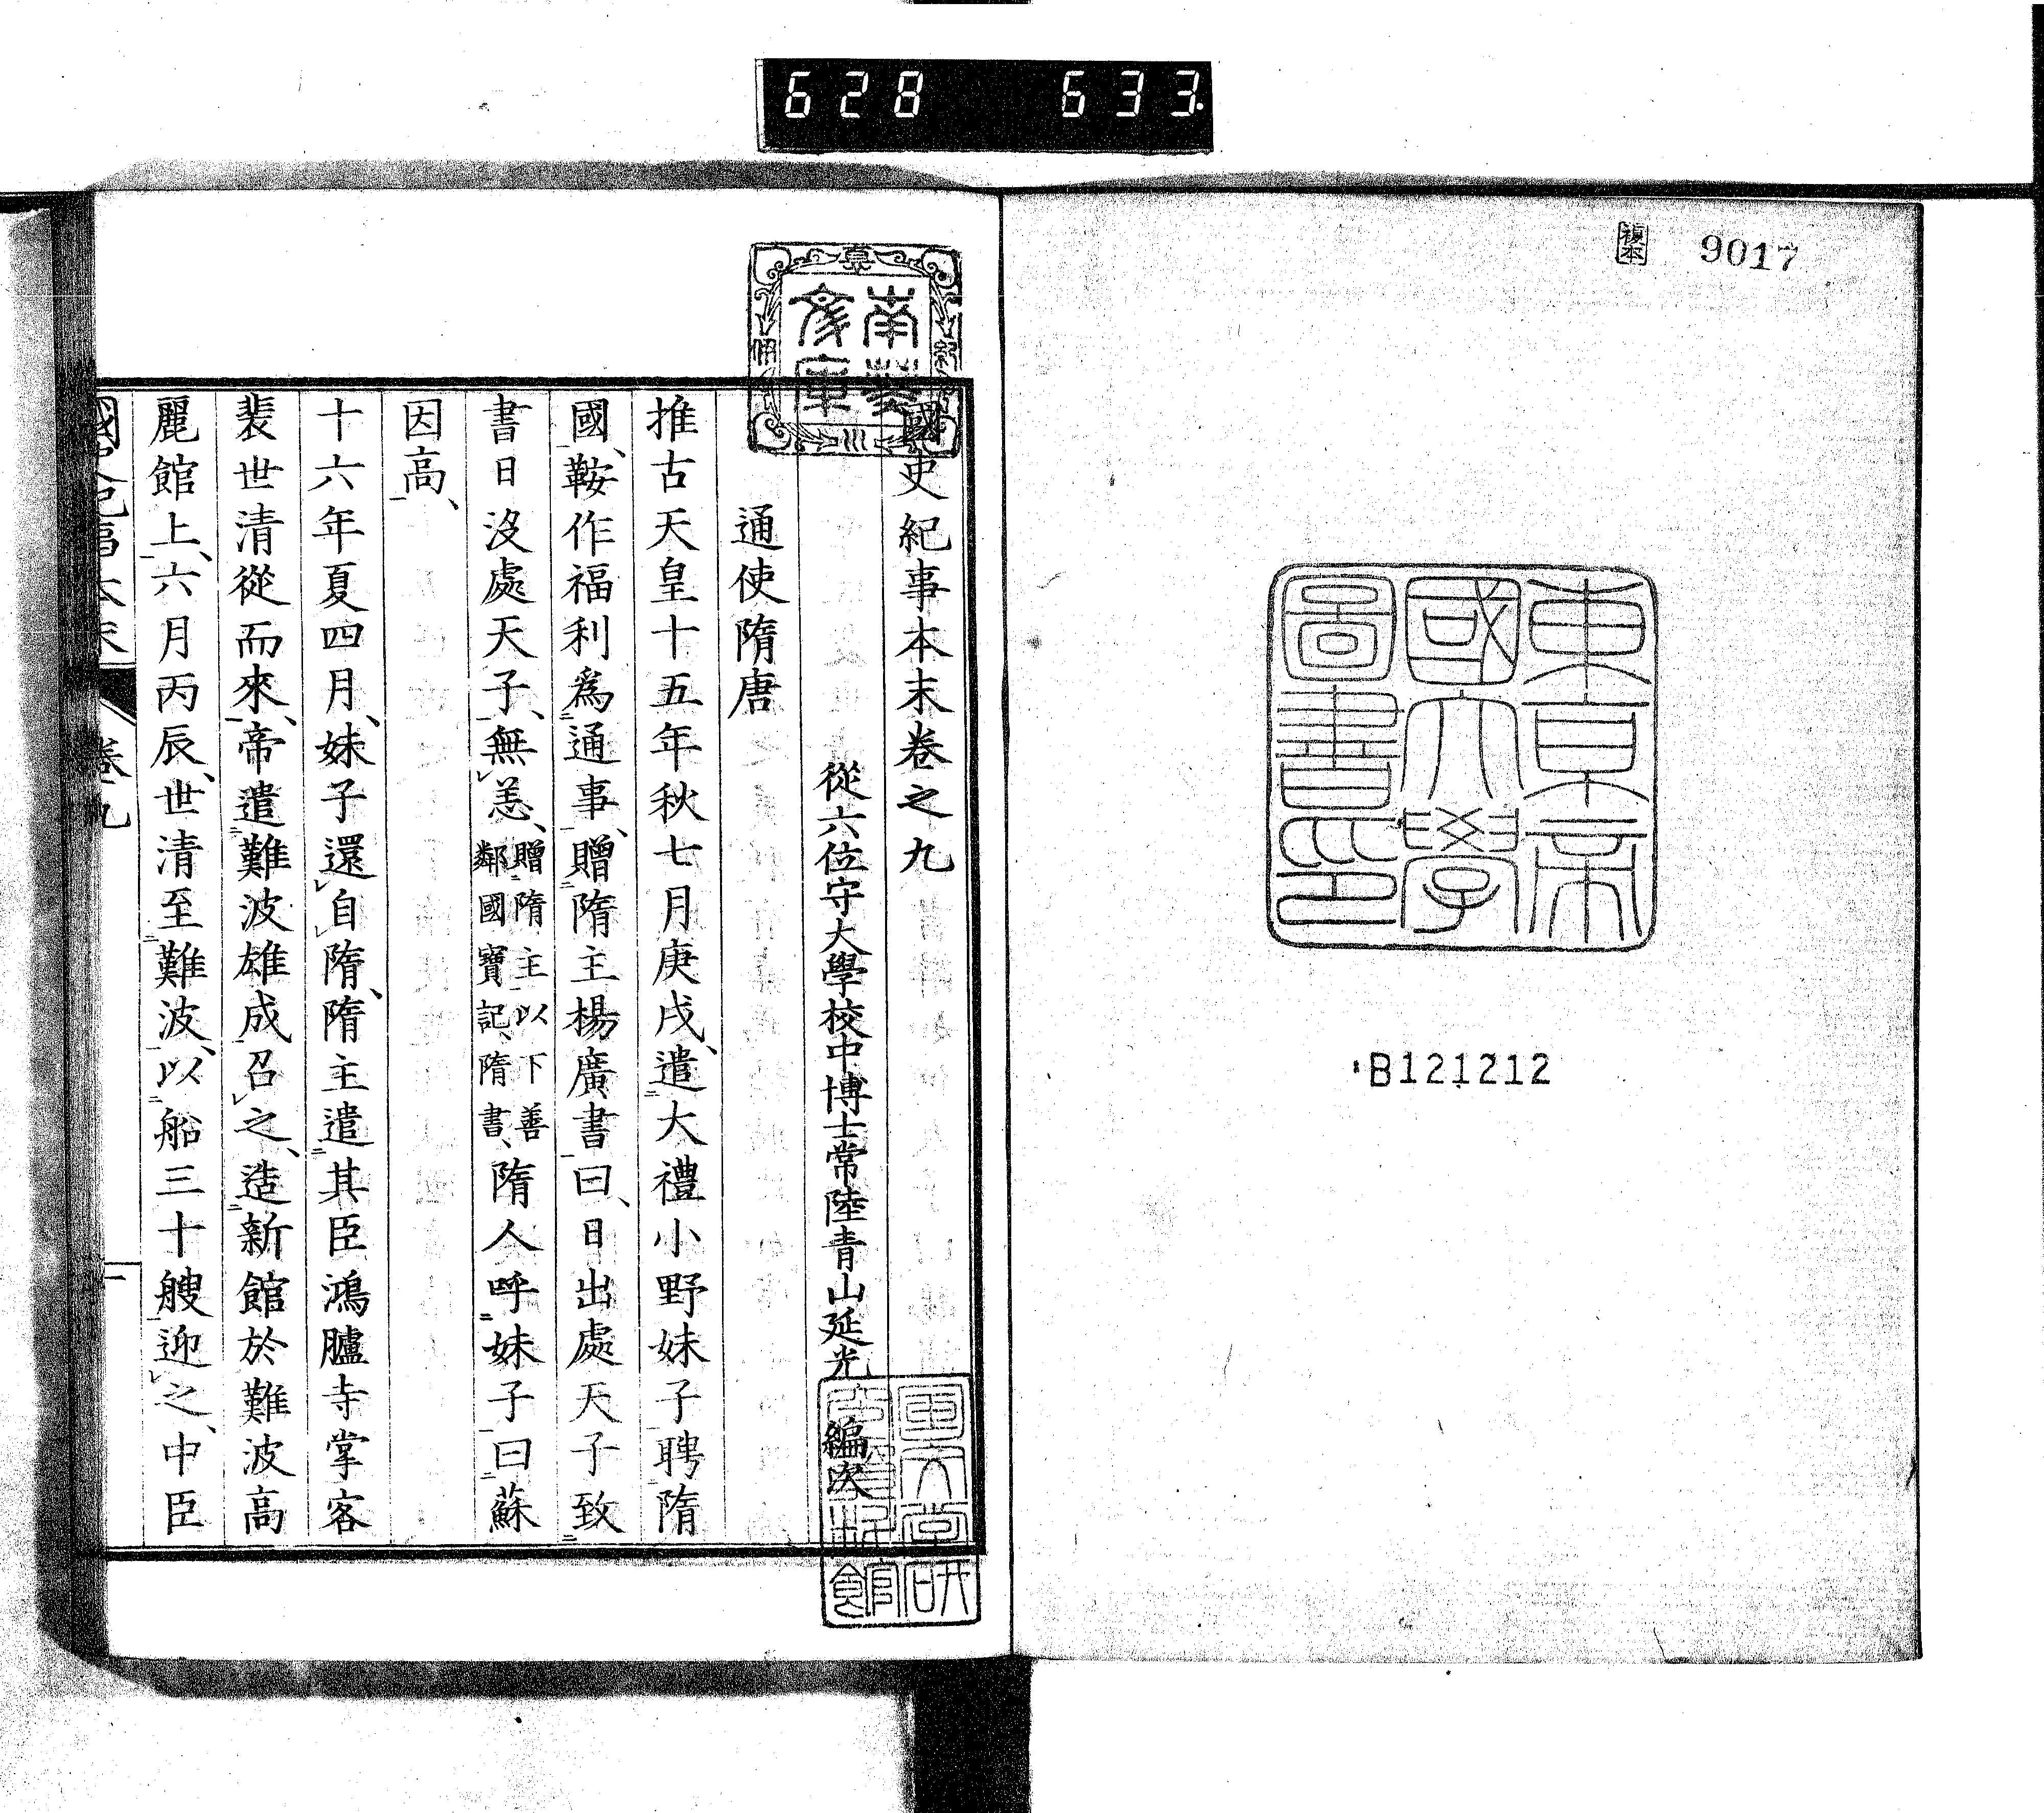 628 633.
複本 9017
東京帝
國大學
圖書印
B121212
國史紀事本末卷之九
從六位守大學校中博士常陸青山延光編次
通使隋唐
推古天皇十五年秋七月庚戌、遣大禮小野妹子聘隋
國、鞍作福利爲通事、贈隋主楊廣書曰、日出處天子致
書日沒處天子、無恙、贈隋主以下善鄰國寶記、隋書、隋人呼妹子曰蘇
因高、
十六年夏四月、妹子還自隋、隋主遣其臣鴻臚寺掌客
裴世清從而來、帝遣難波雄成召之、造新館於難波高
麗館上、六月丙辰、世清至難波、以船三十艘迎之、中臣
國史紀事本末 卷九 一